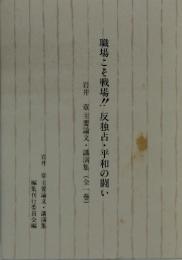 職場こそ戦場!! 反独占・平和の闘い
岩井 章主要論文・講演集(全一巻)
岩井 章主要論文・講演集
編集刊行委員会編